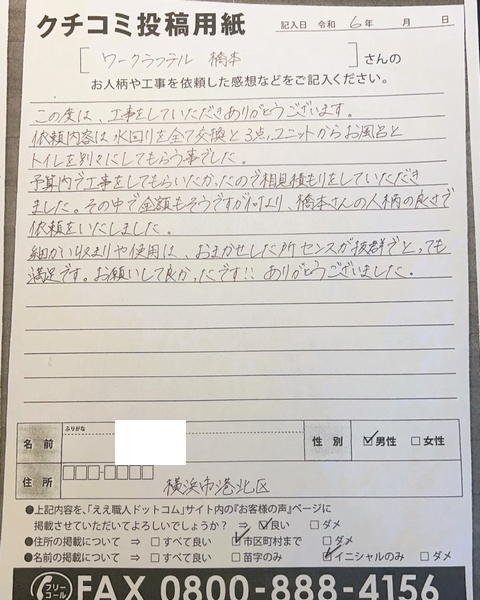 クチコミ投稿用紙
記入日 令和 6年 月 日
[ワークラフテル 橋本]さんの
お人柄や工事を依頼した感想などをご記入ください。
この度は、工事をしていただきありがとうございます。
依頼内容は水回りを全て交換と3点ユニットからお風呂と
トイレを別々にしてもらう事でした。
予算内で工事をしてもらいたかったので相見積もりをしていただき
ました。その中で金額もそうですが何より、橋本さんの人柄の良さで
依頼をいたしました。
細かい収まりや使用は、おまかせした所センスが抜群でとっても
満足です。お願いして良かったです!! ありがとうございました。
ふりがな
名前
性別 ☑男性 □女性
住所 横浜市港北区
●上記内容を、「ええ職人ドットコム」サイト内の『お客様の声』ページに
掲載させていただいてよろしいでしょうか? ⇒ ☑良い □ダメ
●住所の掲載について ⇒ □すべて良い ☑市区町村まで □ダメ
●名前の掲載について ⇒ □すべて良い □苗字のみ ☑イニシャルのみ □ダメ
フリーコール FAX 0800-888-4156